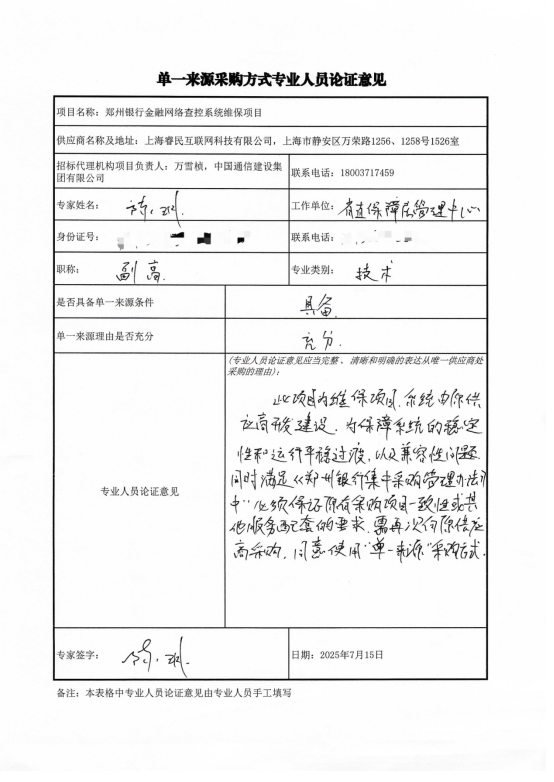 单一来源采购方式专业人员论证意见
项目名称：郑州银行金融网络查控系统维保项目
供应商名称及地址：上海睿民互联网科技有限公司，上海市静安区万荣路1256、1258号1526室
招标代理机构项目负责人：万雪桢，中国通信建设集
团有限公司
联系电话：18003717459
专家姓名：
工作单位：省直保障房管理中心
身份证号：
联系电话：
职称：副高
专业类别：技术
是否具备单一来源条件
具备
单一来源理由是否充分
充分
(专业人员论证意见应当完整、清晰和明确的表达从唯一供应商处
采购的理由)：
专业人员论证意见
此项目为维保项目，系统由原供
应商开发建设，为保障系统的稳定
性和运行平稳过渡，以及兼容性问题
同时满足《郑州银行集中采购管理办法》
中“必须保证原有采购项目一致性或其
他服务配套的要求，需再次向原供应
商采购，同意使用“单一来源”采购方式。
专家签字：
日期：2025年7月15日
备注：本表格中专业人员论证意见由专业人员手工填写